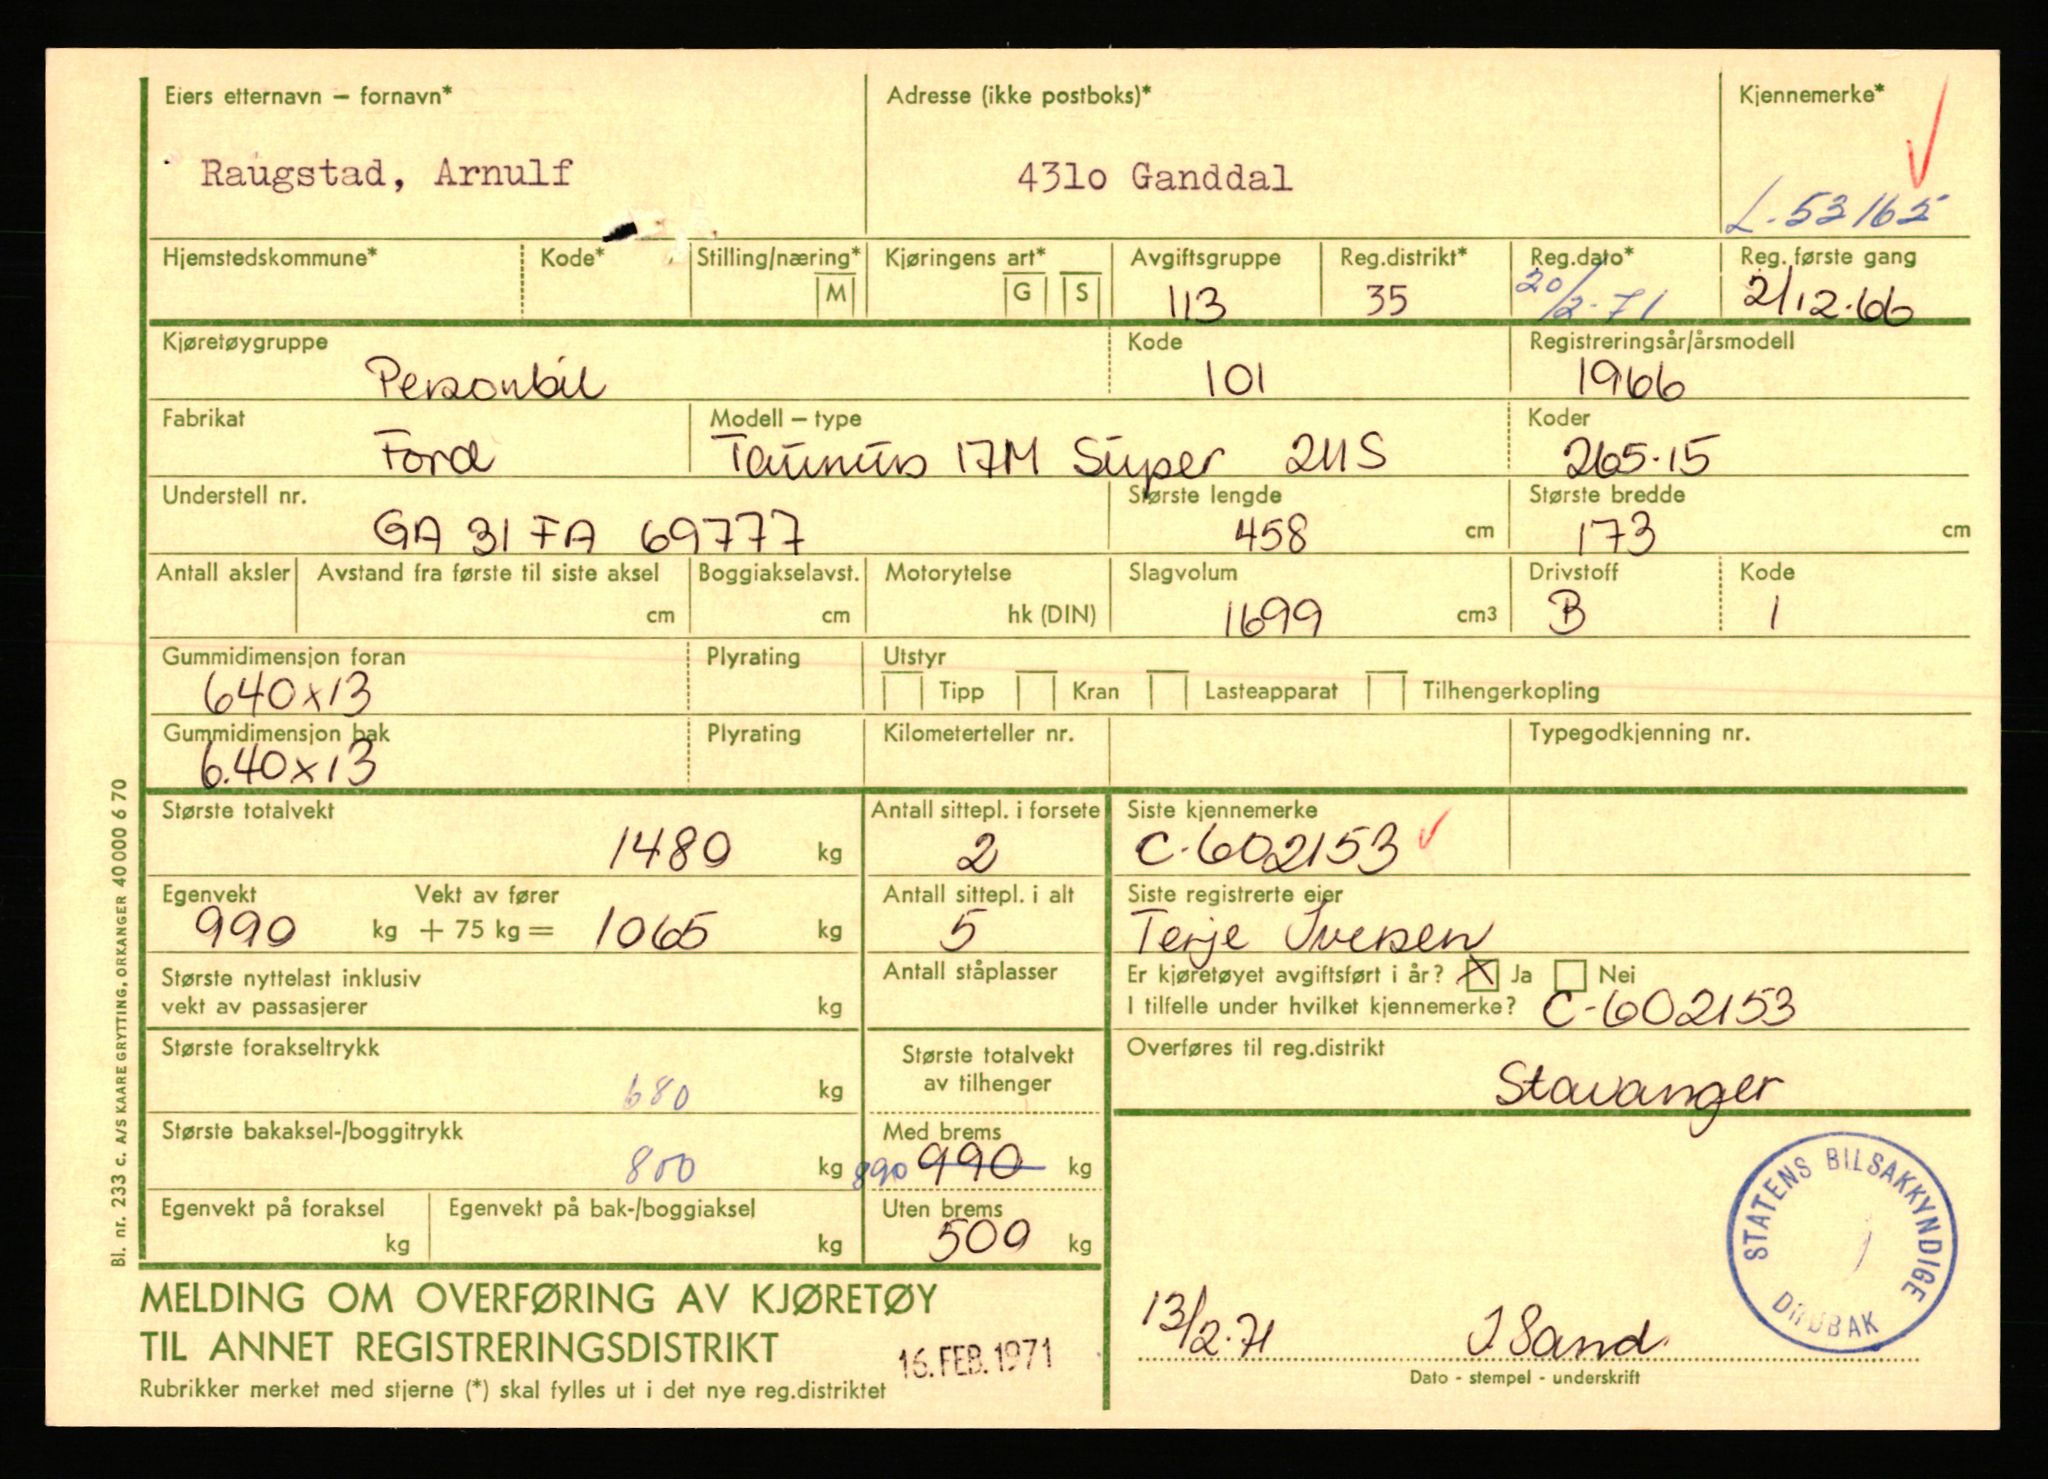 Eiers etternavn – fornavn*
Adresse (ikke postboks)*
Kjennemerke*
Raugstad, Arnulf
4310 Ganddal
L-53165
Hjemstedskommune*
Kode*
Stilling/næring*
M
Kjøringens art*
G
S
Avgiftsgruppe
113
Reg.distrikt*
35
Reg.dato*
20/2-71
Reg. første gang
2/12.66
Kjøretøygruppe
Personbil
Kode
101
Registreringsår/årsmodell
1966
Fabrikat
Ford
Modell – type
Taunus 17M Super 211S
Koder
265.15
Understell nr.
GA 31 FA 69777
Største lengde
458 cm
Største bredde
173 cm
Antall aksler
Avstand fra første til siste aksel
cm
Boggiakselavst.
cm
Motorytelse
hk (DIN)
Slagvolum
1699 cm3
Drivstoff
B
Kode
1
Gummidimensjon foran
640x13
Plyrating
Utstyr
Tipp
Kran
Lasteapparat
Tilhengerkopling
Gummidimensjon bak
6.40x13
Plyrating
Kilometerteller nr.
Typegodkjenning nr.
Største totalvekt
1480 kg
Antall sittepl. i forsete
2
Siste kjennemerke
C-602153
Egenvekt
Vekt av fører
990 kg + 75 kg = 1065 kg
Antall sittepl. i alt
5
Siste registrerte eier
Terje Iversen
Største nyttelast inklusiv
vekt av passasjerer
kg
Antall ståplasser
Er kjøretøyet avgiftsført i år? X Ja Nei
I tilfelle under hvilket kjennemerke? C-602153
Største forakseltrykk
680 kg
Største totalvekt
av tilhenger
Overføres til reg.distrikt
Stavanger
Største bakaksel-/boggitrykk
800 kg
Med brems
890 990 kg
Egenvekt på foraksel
kg
Egenvekt på bak-/boggiaksel
kg
Uten brems
500 kg
STATENS BILSAKKYNDIGE
DRØBAK
MELDING OM OVERFØRING AV KJØRETØY
TIL ANNET REGISTRERINGSDISTRIKT
16. FEB. 1971
Rubrikker merket med stjerne (*) skal fylles ut i det nye reg.distriktet
13/2-71
J Sand
Dato - stempel - underskrift
Bl. nr. 233 c. A/S KAARE GRYTTING, ORKANGER 40 000 6 70